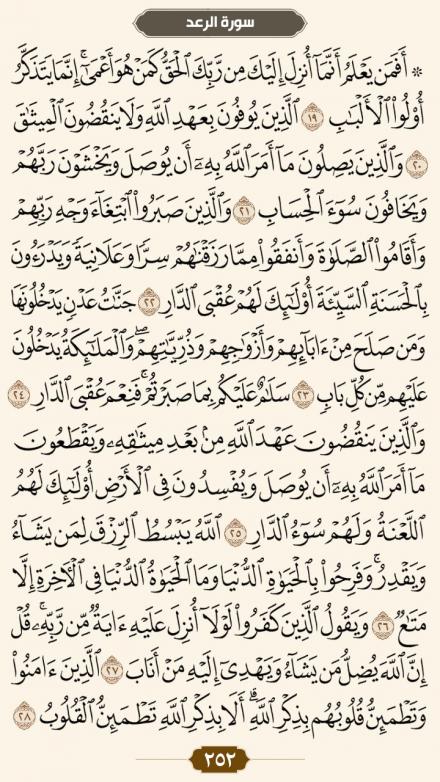 سورة الرعد
۞ أَفَمَن يَعْلَمُ أَنَّمَآ أُنزِلَ إِلَيْكَ مِن رَّبِّكَ ٱلْحَقُّ كَمَنْ هُوَ أَعْمَىٰٓ ۚ إِنَّمَا يَتَذَكَّرُ
أُو۟لُوا۟ ٱلْأَلْبَـٰبِ ١٩ ٱلَّذِينَ يُوفُونَ بِعَهْدِ ٱللَّهِ وَلَا يَنقُضُونَ ٱلْمِيثَـٰقَ
٢٠ وَٱلَّذِينَ يَصِلُونَ مَآ أَمَرَ ٱللَّهُ بِهِۦٓ أَن يُوصَلَ وَيَخْشَوْنَ رَبَّهُمْ
وَيَخَافُونَ سُوٓءَ ٱلْحِسَابِ ٢١ وَٱلَّذِينَ صَبَرُوا۟ ٱبْتِغَآءَ وَجْهِ رَبِّهِمْ
وَأَقَامُوا۟ ٱلصَّلَوٰةَ وَأَنفَقُوا۟ مِمَّا رَزَقْنَـٰهُمْ سِرًّا وَعَلَانِيَةً وَيَدْرَءُونَ
بِٱلْحَسَنَةِ ٱلسَّيِّئَةَ أُو۟لَـٰٓئِكَ لَهُمْ عُقْبَى ٱلدَّارِ ٢٢ جَنَّـٰتُ عَدْنٍ يَدْخُلُونَهَا
وَمَن صَلَحَ مِنْ ءَابَآئِهِمْ وَأَزْوَٰجِهِمْ وَذُرِّيَّـٰتِهِمْ ۖ وَٱلْمَلَـٰٓئِكَةُ يَدْخُلُونَ
عَلَيْهِم مِّن كُلِّ بَابٍ ٢٣ سَلَـٰمٌ عَلَيْكُم بِمَا صَبَرْتُمْ ۚ فَنِعْمَ عُقْبَى ٱلدَّارِ ٢٤
وَٱلَّذِينَ يَنقُضُونَ عَهْدَ ٱللَّهِ مِنۢ بَعْدِ مِيثَـٰقِهِۦ وَيَقْطَعُونَ
مَآ أَمَرَ ٱللَّهُ بِهِۦٓ أَن يُوصَلَ وَيُفْسِدُونَ فِى ٱلْأَرْضِ ۙ أُو۟لَـٰٓئِكَ لَهُمُ
ٱللَّعْنَةُ وَلَهُمْ سُوٓءُ ٱلدَّارِ ٢٥ ٱللَّهُ يَبْسُطُ ٱلرِّزْقَ لِمَن يَشَآءُ
وَيَقْدِرُ ۚ وَفَرِحُوا۟ بِٱلْحَيَوٰةِ ٱلدُّنْيَا وَمَا ٱلْحَيَوٰةُ ٱلدُّنْيَا فِى ٱلْـَٔاخِرَةِ إِلَّا
مَتَـٰعٌ ٢٦ وَيَقُولُ ٱلَّذِينَ كَفَرُوا۟ لَوْلَآ أُنزِلَ عَلَيْهِ ءَايَةٌ مِّن رَّبِّهِۦ ۗ قُلْ
إِنَّ ٱللَّهَ يُضِلُّ مَن يَشَآءُ وَيَهْدِىٓ إِلَيْهِ مَنْ أَنَابَ ٢٧ ٱلَّذِينَ ءَامَنُوا۟
وَتَطْمَئِنُّ قُلُوبُهُم بِذِكْرِ ٱللَّهِ ۗ أَلَا بِذِكْرِ ٱللَّهِ تَطْمَئِنُّ ٱلْقُلُوبُ ٢٨
٢٥٢